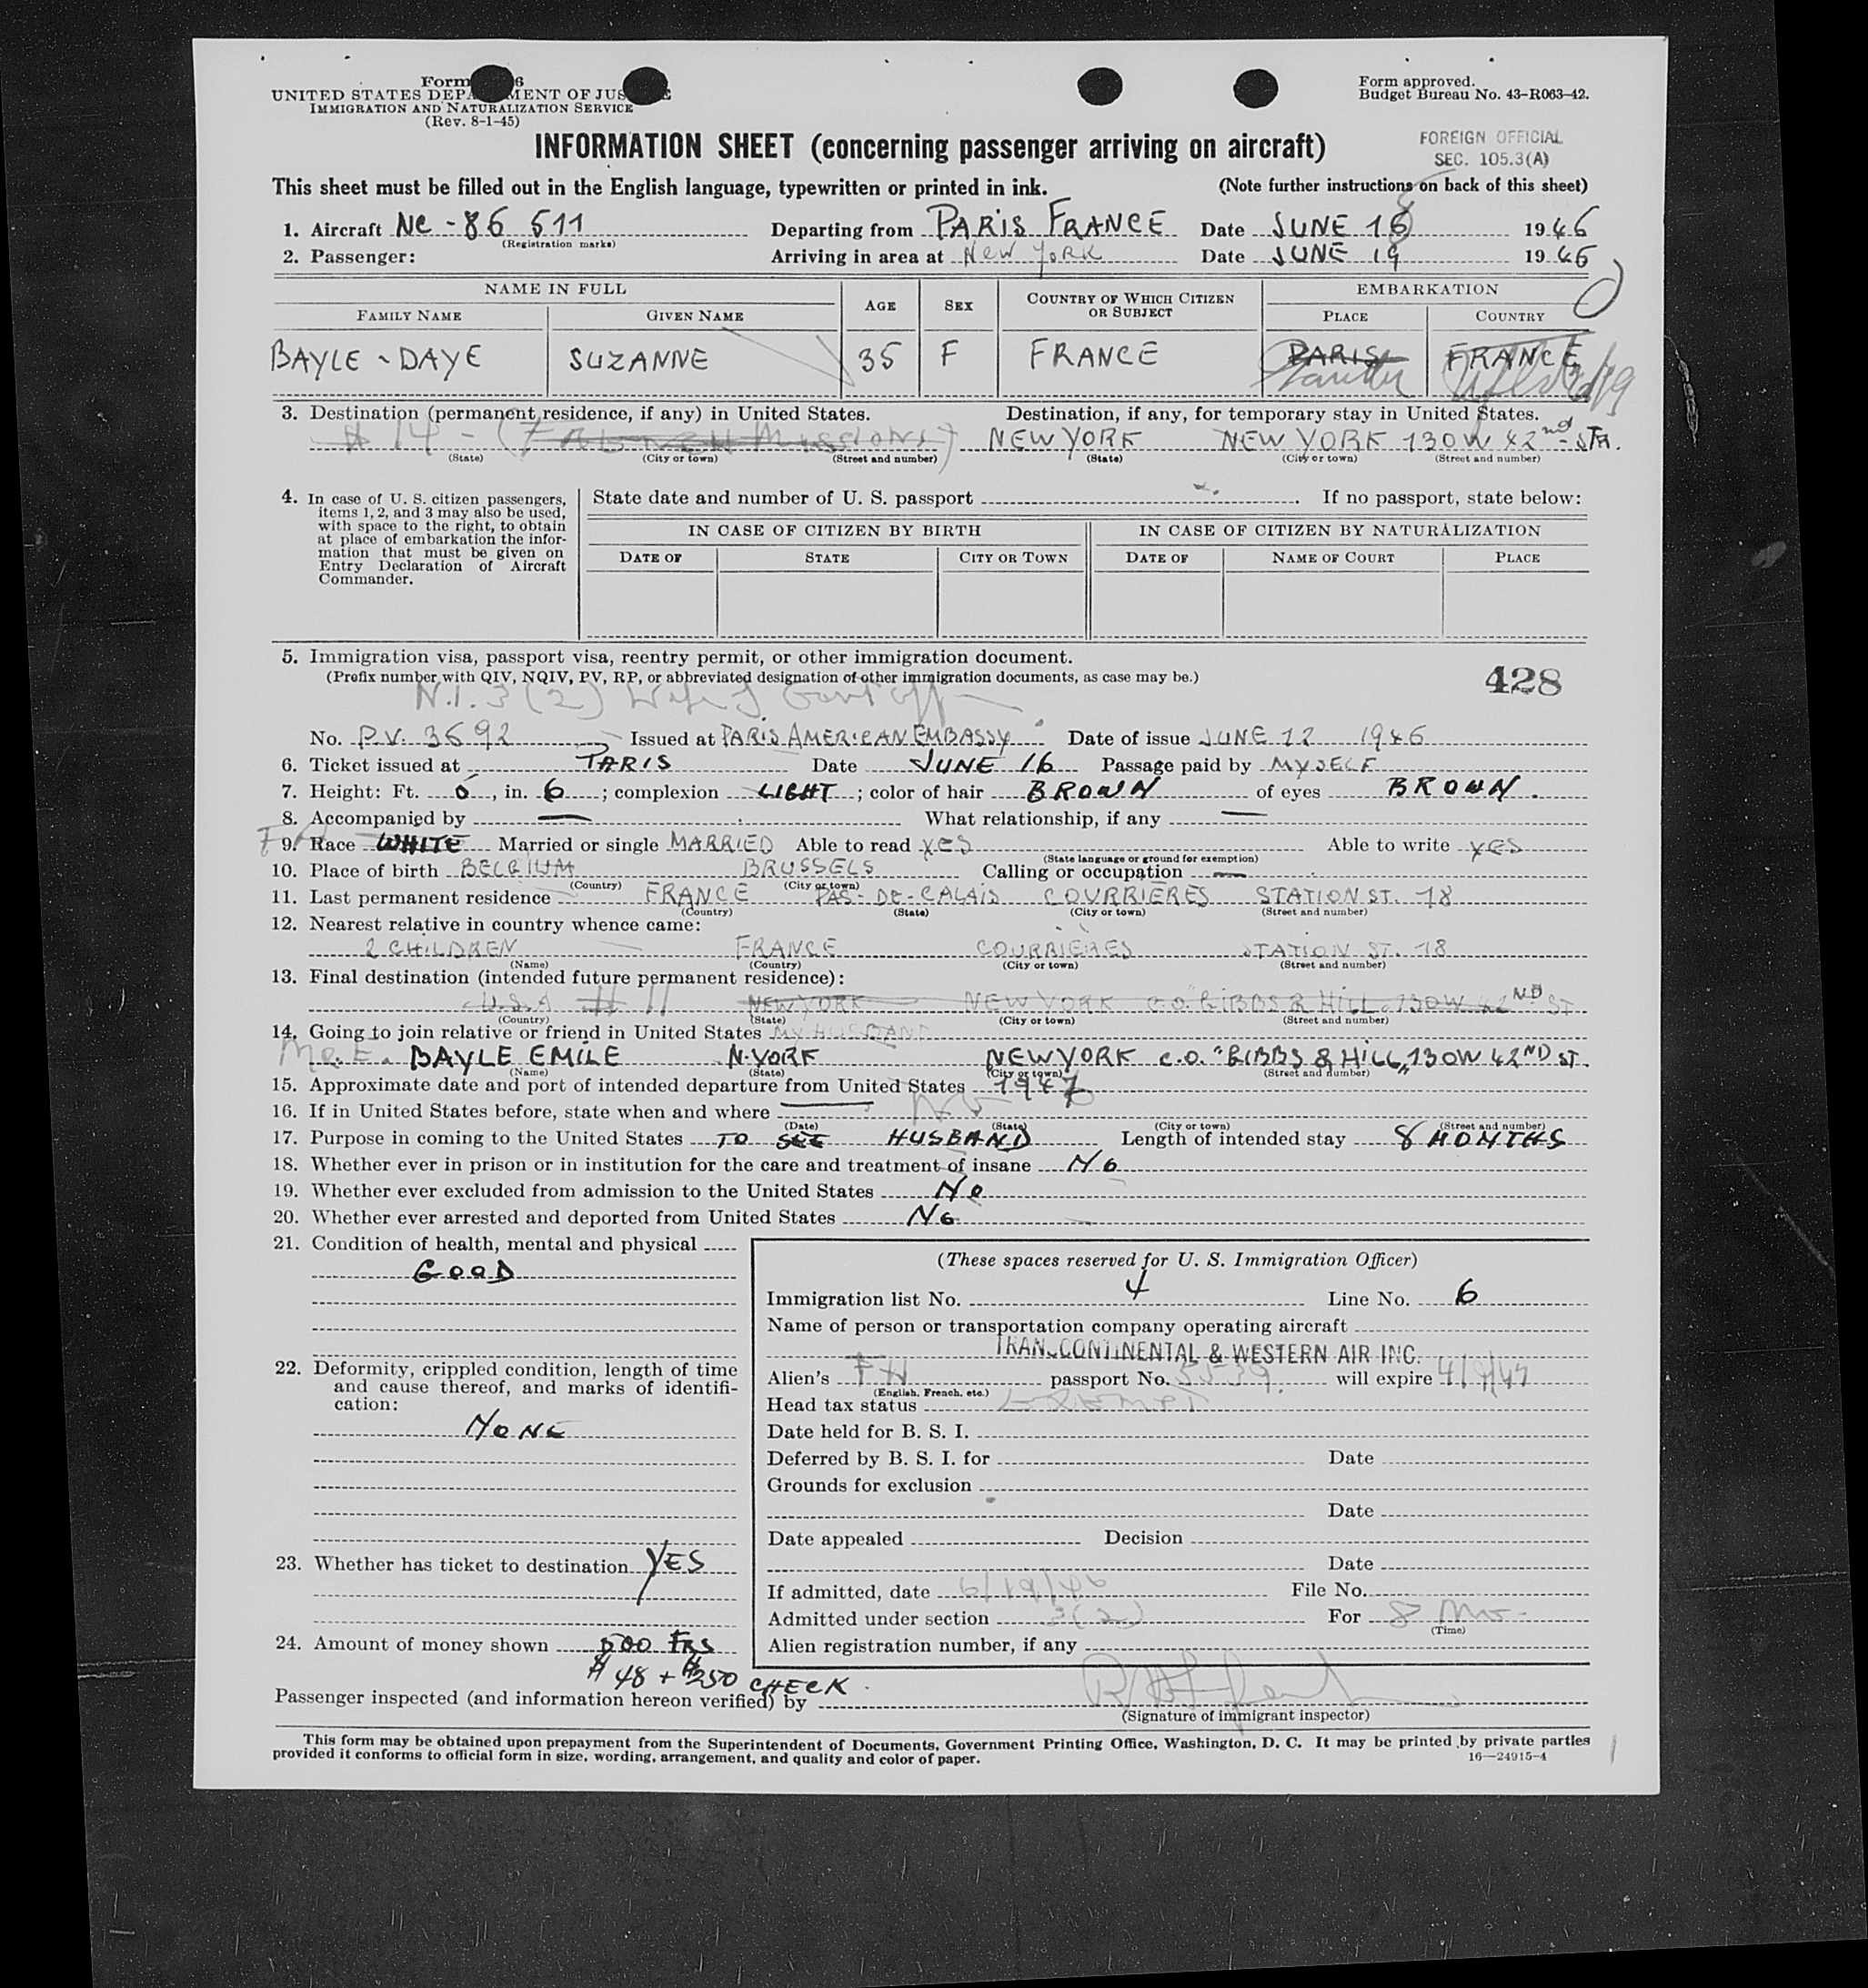 Form 6
UNITED STATES DEPA MENT OF JUS E
IMMIGRATION AND NATURALIZATION SERVICE
(Rev. 8-1-45)
Form approved.
Budget Bureau No. 43-R063-42.
INFORMATION SHEET (concerning passenger arriving on aircraft)
FOREIGN OFFICIAL
SEC. 105.3(A)
This sheet must be filled out in the English language, typewritten or printed in ink. (Note further instructions on back of this sheet)
1. Aircraft NC-86 511 Departing from PARIS FRANCE Date JUNE 18 1946
(Registration marks)
2. Passenger: Arriving in area at New York Date JUNE 19 1946
NAME IN FULL AGE SEX COUNTRY OF WHICH CITIZEN OR SUBJECT EMBARKATION
FAMILY NAME GIVEN NAME PLACE COUNTRY
BAYLE-DAYE SUZANNE 35 F FRANCE PARIS FRANCE
3. Destination (permanent residence, if any) in United States. Destination, if any, for temporary stay in United States.
# 14 - NEW YORK NEW YORK 130 W 42nd STR.
(State) (City or town) (Street and number) (State) (City or town) (Street and number)
4. In case of U. S. citizen passengers, items 1, 2, and 3 may also be used, with space to the right, to obtain at place of embarkation the information that must be given on Entry Declaration of Aircraft Commander.
State date and number of U. S. passport . If no passport, state below:
IN CASE OF CITIZEN BY BIRTH IN CASE OF CITIZEN BY NATURALIZATION
DATE OF STATE CITY OR TOWN DATE OF NAME OF COURT PLACE
5. Immigration visa, passport visa, reentry permit, or other immigration document.
(Prefix number with QIV, NQIV, PV, RP, or abbreviated designation of other immigration documents, as case may be.)
428
N.I. 3(2) Wife of Govt Off
No. P.V. 3692 Issued at PARIS AMERICAN EMBASSY Date of issue JUNE 12 1946
6. Ticket issued at PARIS Date JUNE 16 Passage paid by MYSELF
7. Height: Ft. , in. 6 ; complexion LIGHT ; color of hair BROWN of eyes BROWN.
8. Accompanied by — What relationship, if any —
9. Race WHITE Married or single MARRIED Able to read YES Able to write YES
(State language or ground for exemption)
10. Place of birth BELGIUM BRUSSELS Calling or occupation —
(Country) (City or town)
11. Last permanent residence FRANCE PAS-DE-CALAIS COURRIERES STATION ST. 18
(Country) (State) (City or town) (Street and number)
12. Nearest relative in country whence came:
2 CHILDREN FRANCE COURRIERES STATION ST. 18
(Name) (Country) (City or town) (Street and number)
13. Final destination (intended future permanent residence):
U.S.A # 11 NEW YORK NEW YORK C.O. "GIBBS & HILL" 130W 42ND ST
(Country) (State) (City or town) (Street and number)
14. Going to join relative or friend in United States MY HUSBAND
BAYLE EMILE N.YORK NEW YORK C.O. "GIBBS & HILL" 130W 42ND ST.
(Name) (State) (City or town) (Street and number)
15. Approximate date and port of intended departure from United States 1947
16. If in United States before, state when and where No
(Date) (State) (City or town) (Street and number)
17. Purpose in coming to the United States TO SEE HUSBAND Length of intended stay 8 MONTHS
18. Whether ever in prison or in institution for the care and treatment of insane No
19. Whether ever excluded from admission to the United States No
20. Whether ever arrested and deported from United States No
21. Condition of health, mental and physical
GOOD
22. Deformity, crippled condition, length of time and cause thereof, and marks of identification:
NONE
23. Whether has ticket to destination YES
24. Amount of money shown 500 FRS
$ 48 + $250 CHECK
(These spaces reserved for U. S. Immigration Officer)
Immigration list No. 4 Line No. 6
Name of person or transportation company operating aircraft
TRANSCONTINENTAL & WESTERN AIR INC.
Alien's FH passport No. 5539 will expire 4/9/47
(English, French, etc.)
Head tax status Exempt
Date held for B. S. I.
Deferred by B. S. I. for Date
Grounds for exclusion
Date
Date appealed Decision
Date
If admitted, date 6/19/46 File No.
Admitted under section 3(2) For 8 Mos.
(Time)
Alien registration number, if any
Passenger inspected (and information hereon verified) by
(Signature of immigrant inspector)
This form may be obtained upon prepayment from the Superintendent of Documents, Government Printing Office, Washington, D. C. It may be printed by private parties
provided it conforms to official form in size, wording, arrangement, and quality and color of paper. 16—24915-4